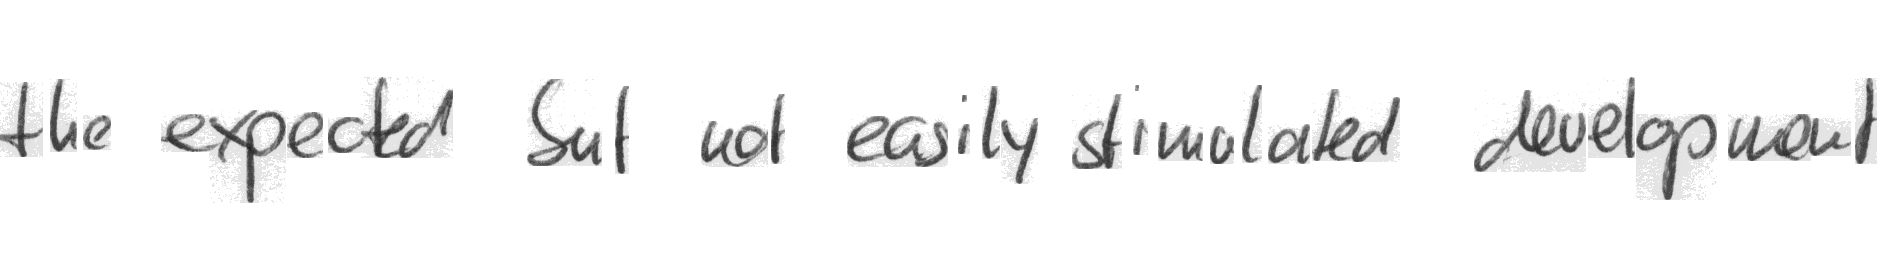 the expected but not easily stimulated development